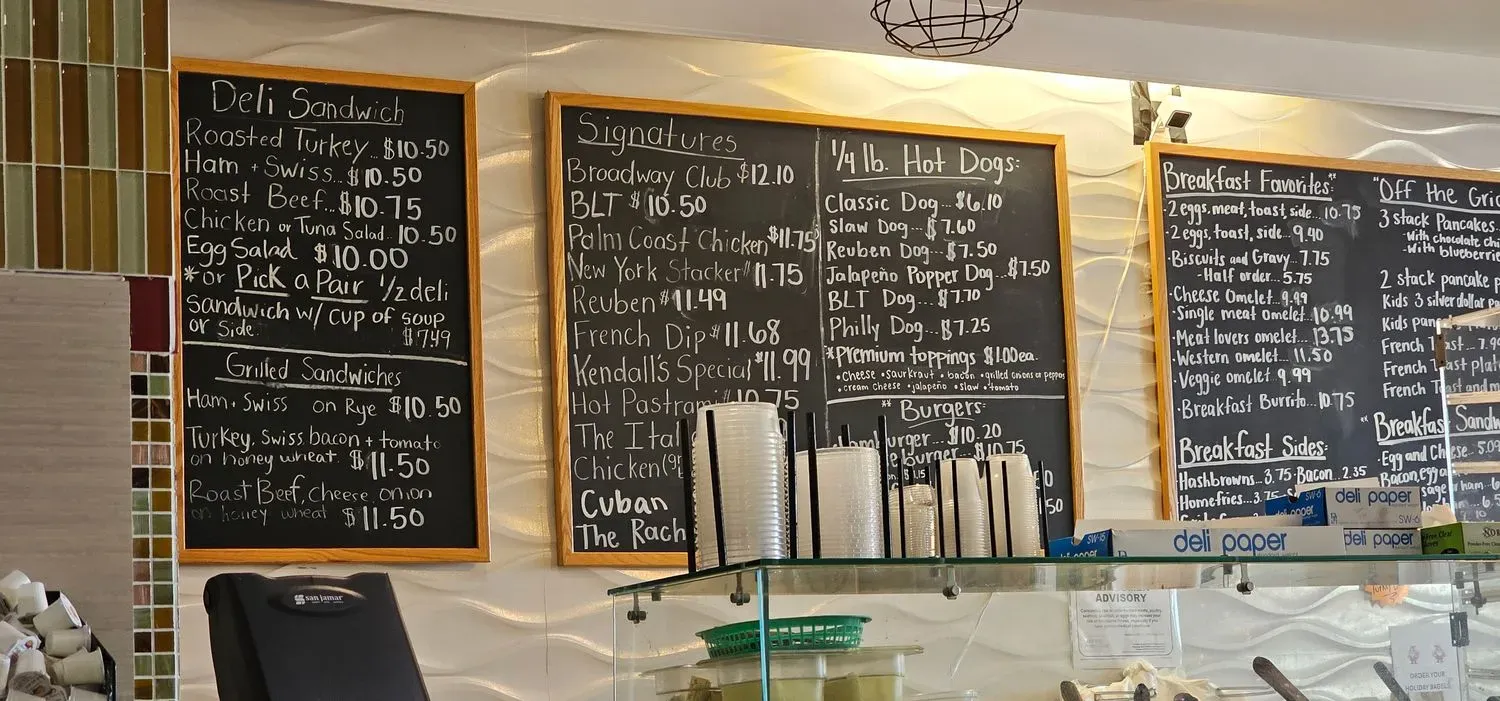 Deli Sandwich
Roasted Turkey.. $10.50
Ham + Swiss...$10.50
Roast Beef...$10.75
Chicken or Tuna Salad..10.50
Egg Salad $10.00
*or Pick a Pair 1/2 deli
sandwich w/ cup of soup
or side. $7.49
Grilled Sandwiches
Ham + Swiss on Rye $10.50
Turkey, Swiss, bacon + tomato
on honey wheat. $11.50
Roast Beef, cheese, onion
on honey wheat $11.50
Signatures
Broadway Club $12.10
BLT $10.50
Palm Coast Chicken $11.75
New York Stacker 11.75
Reuben $11.49
French Dip $11.68
Kendall's Special $11.99
Hot Pastrami 10.75
The Ital
Chicken
Cuban
The Rach
1/4 lb. Hot Dogs:
Classic Dog...$6.10
Slaw Dog...$7.60
Reuben Dog...$7.50
Jalapeño Popper Dog...$7.50
BLT Dog...$7.70
Philly Dog...$7.25
*Premium toppings $1.00ea.
• cheese • saurkraut • bacon • grilled onions or peppers
• cream cheese • jalapeño • slaw • tomato
** Burgers:
Hamburger...$10.20
$10.75
Breakfast Favorites:**
• 2 eggs, meat, toast, side...10.75
• 2 eggs, toast, side...9.40
• Biscuits and Gravy..7.75
- Half order...5.75
• Cheese Omelet...9.99
• Single meat omelet...10.99
Meat lovers omelet...13.75
• Western omelet...11.50
• Veggie omelet..9.99
• Breakfast Burrito...10.75
Breakfast Sides:
Hashbrowns..3.75 Bacon..2.35
Homefries...3.75
"Off the Grid
3 stack Pancakes..
- With chocolate chi
- With blueberrie
2 stack pancake p
Kids 3 silver dollar pa
Kids panc
French Toast...7.99
French Toast plat
French Toast and m
** Breakfast Sandw
• Egg and Cheese..5.09
san jamar
SW-6
deli paper
SW-6
SW-15
deli paper
deli paper
ADVISORY
ORDER YOUR
HOLIDAY BAGELS